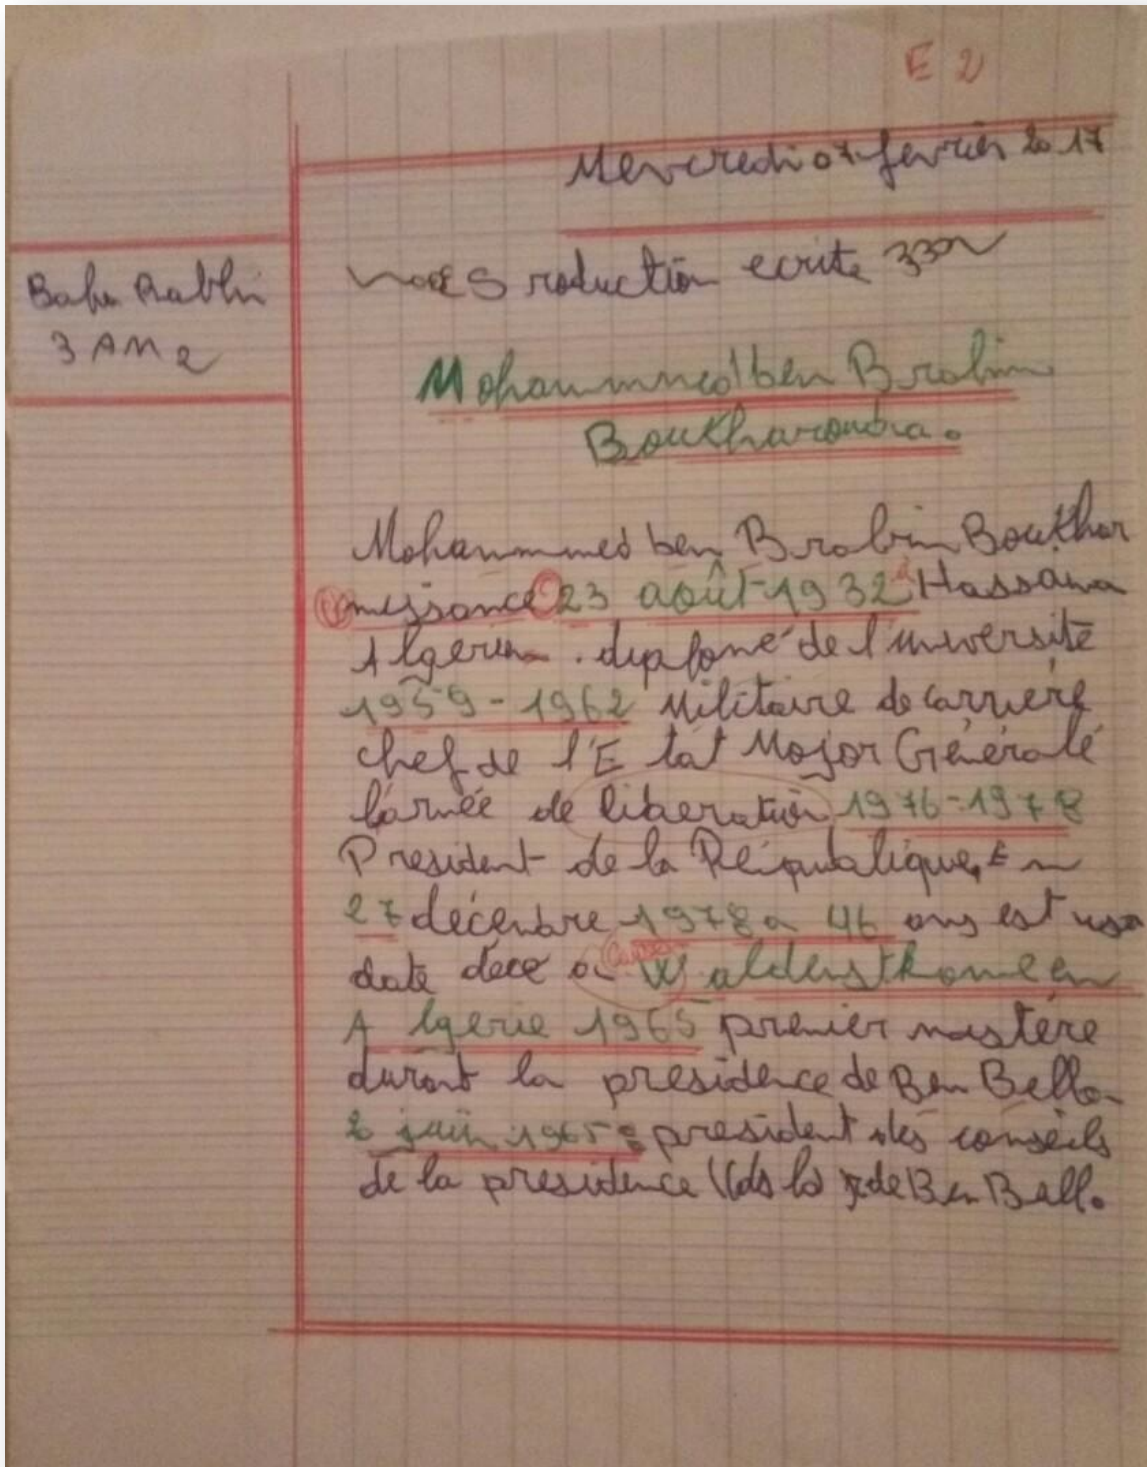 E 2
Mercredi 07 fevrier 2017
Baha Rabhi
3 AM 2
roduction ecrite
Mohammed ben Brahim
Boukharouba.
Mohammed ben Brahim Boukhar
naissance 23 août 1932 à Hassana
Algerie . diplomé de l'université
1959-1962 Militaire de carriere
chef de l'E tat Major Générale
l'armée de liberation 1976-1978
President de la République, En
27 décembre 1978 a 46 ans est
date dece a
A lgerie 1965 premier
durant la presidence de Ben Bella
juin 1965 : president des conseils
de la presidence de Ben Bell.